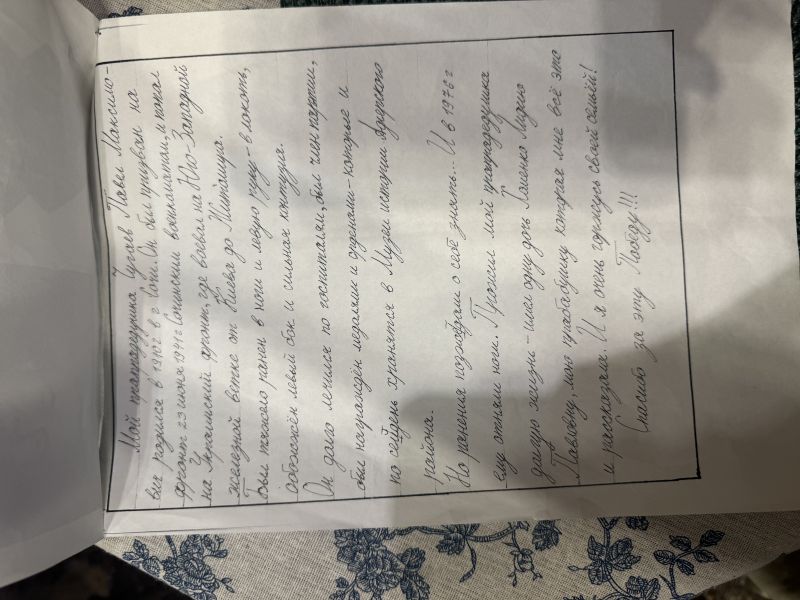 Мой прапрадедушка Чугаев Павел Максимо-
вич родился в 1910г в г Сочи. Он был призван на
фронт 23 июня 1941г Сочинским военкоматом, и попал
на Украинский фронт, где воевал на Юго-Западной
железной ветке от Киева до Житомира.
Был тяжело ранен в ноги и левую руку - в локоть,
обожжён левый бок и сильная контузия.
Он долго лечился по госпиталям, был член партии,
был награждён медалями и орденами - которые и
по сей день хранятся в Музеи истории
района.
Но ранения позже дали о себе знать... И в 1976 г
ему отняли ноги. Прожил мой прапрадедушка
долгую жизнь - имел одну дочь Лидию
Павловну, мою прабабушку которая мне всё это
и рассказала. И я очень горжусь своей семьёй!
Спасибо за эту Победу!!!